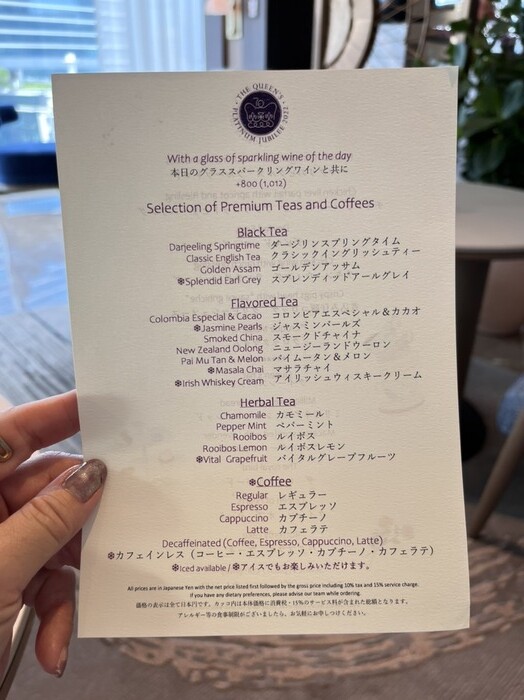 THE QUEEN'S PLATINUM JUBILEE 2022
With a glass of sparkling wine of the day
本日のグラススパークリングワインと共に
+800 (1,012)
Selection of Premium Teas and Coffees
Black Tea
Darjeeling Springtime ダージリンスプリングタイム
Classic English Tea クラシックイングリッシュティー
Golden Assam ゴールデンアッサム
❄Splendid Earl Grey スプレンディッドアールグレイ
Flavored Tea
Colombia Especial & Cacao コロンビアエスペシャル＆カカオ
❄Jasmine Pearls ジャスミンパールズ
Smoked China スモークドチャイナ
New Zealand Oolong ニュージーランドウーロン
Pai Mu Tan & Melon パイムータン＆メロン
❄Masala Chai マサラチャイ
❄Irish Whiskey Cream アイリッシュウィスキークリーム
Herbal Tea
Chamomile カモミール
Pepper Mint ペパーミント
Rooibos ルイボス
Rooibos Lemon ルイボスレモン
❄Vital Grapefruit バイタルグレープフルーツ
❄Coffee
Regular レギュラー
Espresso エスプレッソ
Cappuccino カプチーノ
Latte カフェラテ
Decaffeinated (Coffee, Espresso, Cappuccino, Latte)
❄カフェインレス（コーヒー・エスプレッソ・カプチーノ・カフェラテ）
❄Iced available / ❄アイスでもお楽しみいただけます。
All prices are in Japanese Yen with the net price listed first followed by the gross price including 10% tax and 15% service charge.
If you have any dietary preferences, please advise our team while ordering.
価格の表示は全て日本円です。カッコ内は本体価格に消費税・15%のサービス料が含まれた総額となります。
アレルギー等の食事制限がございましたら、お気軽にお申しつけください。